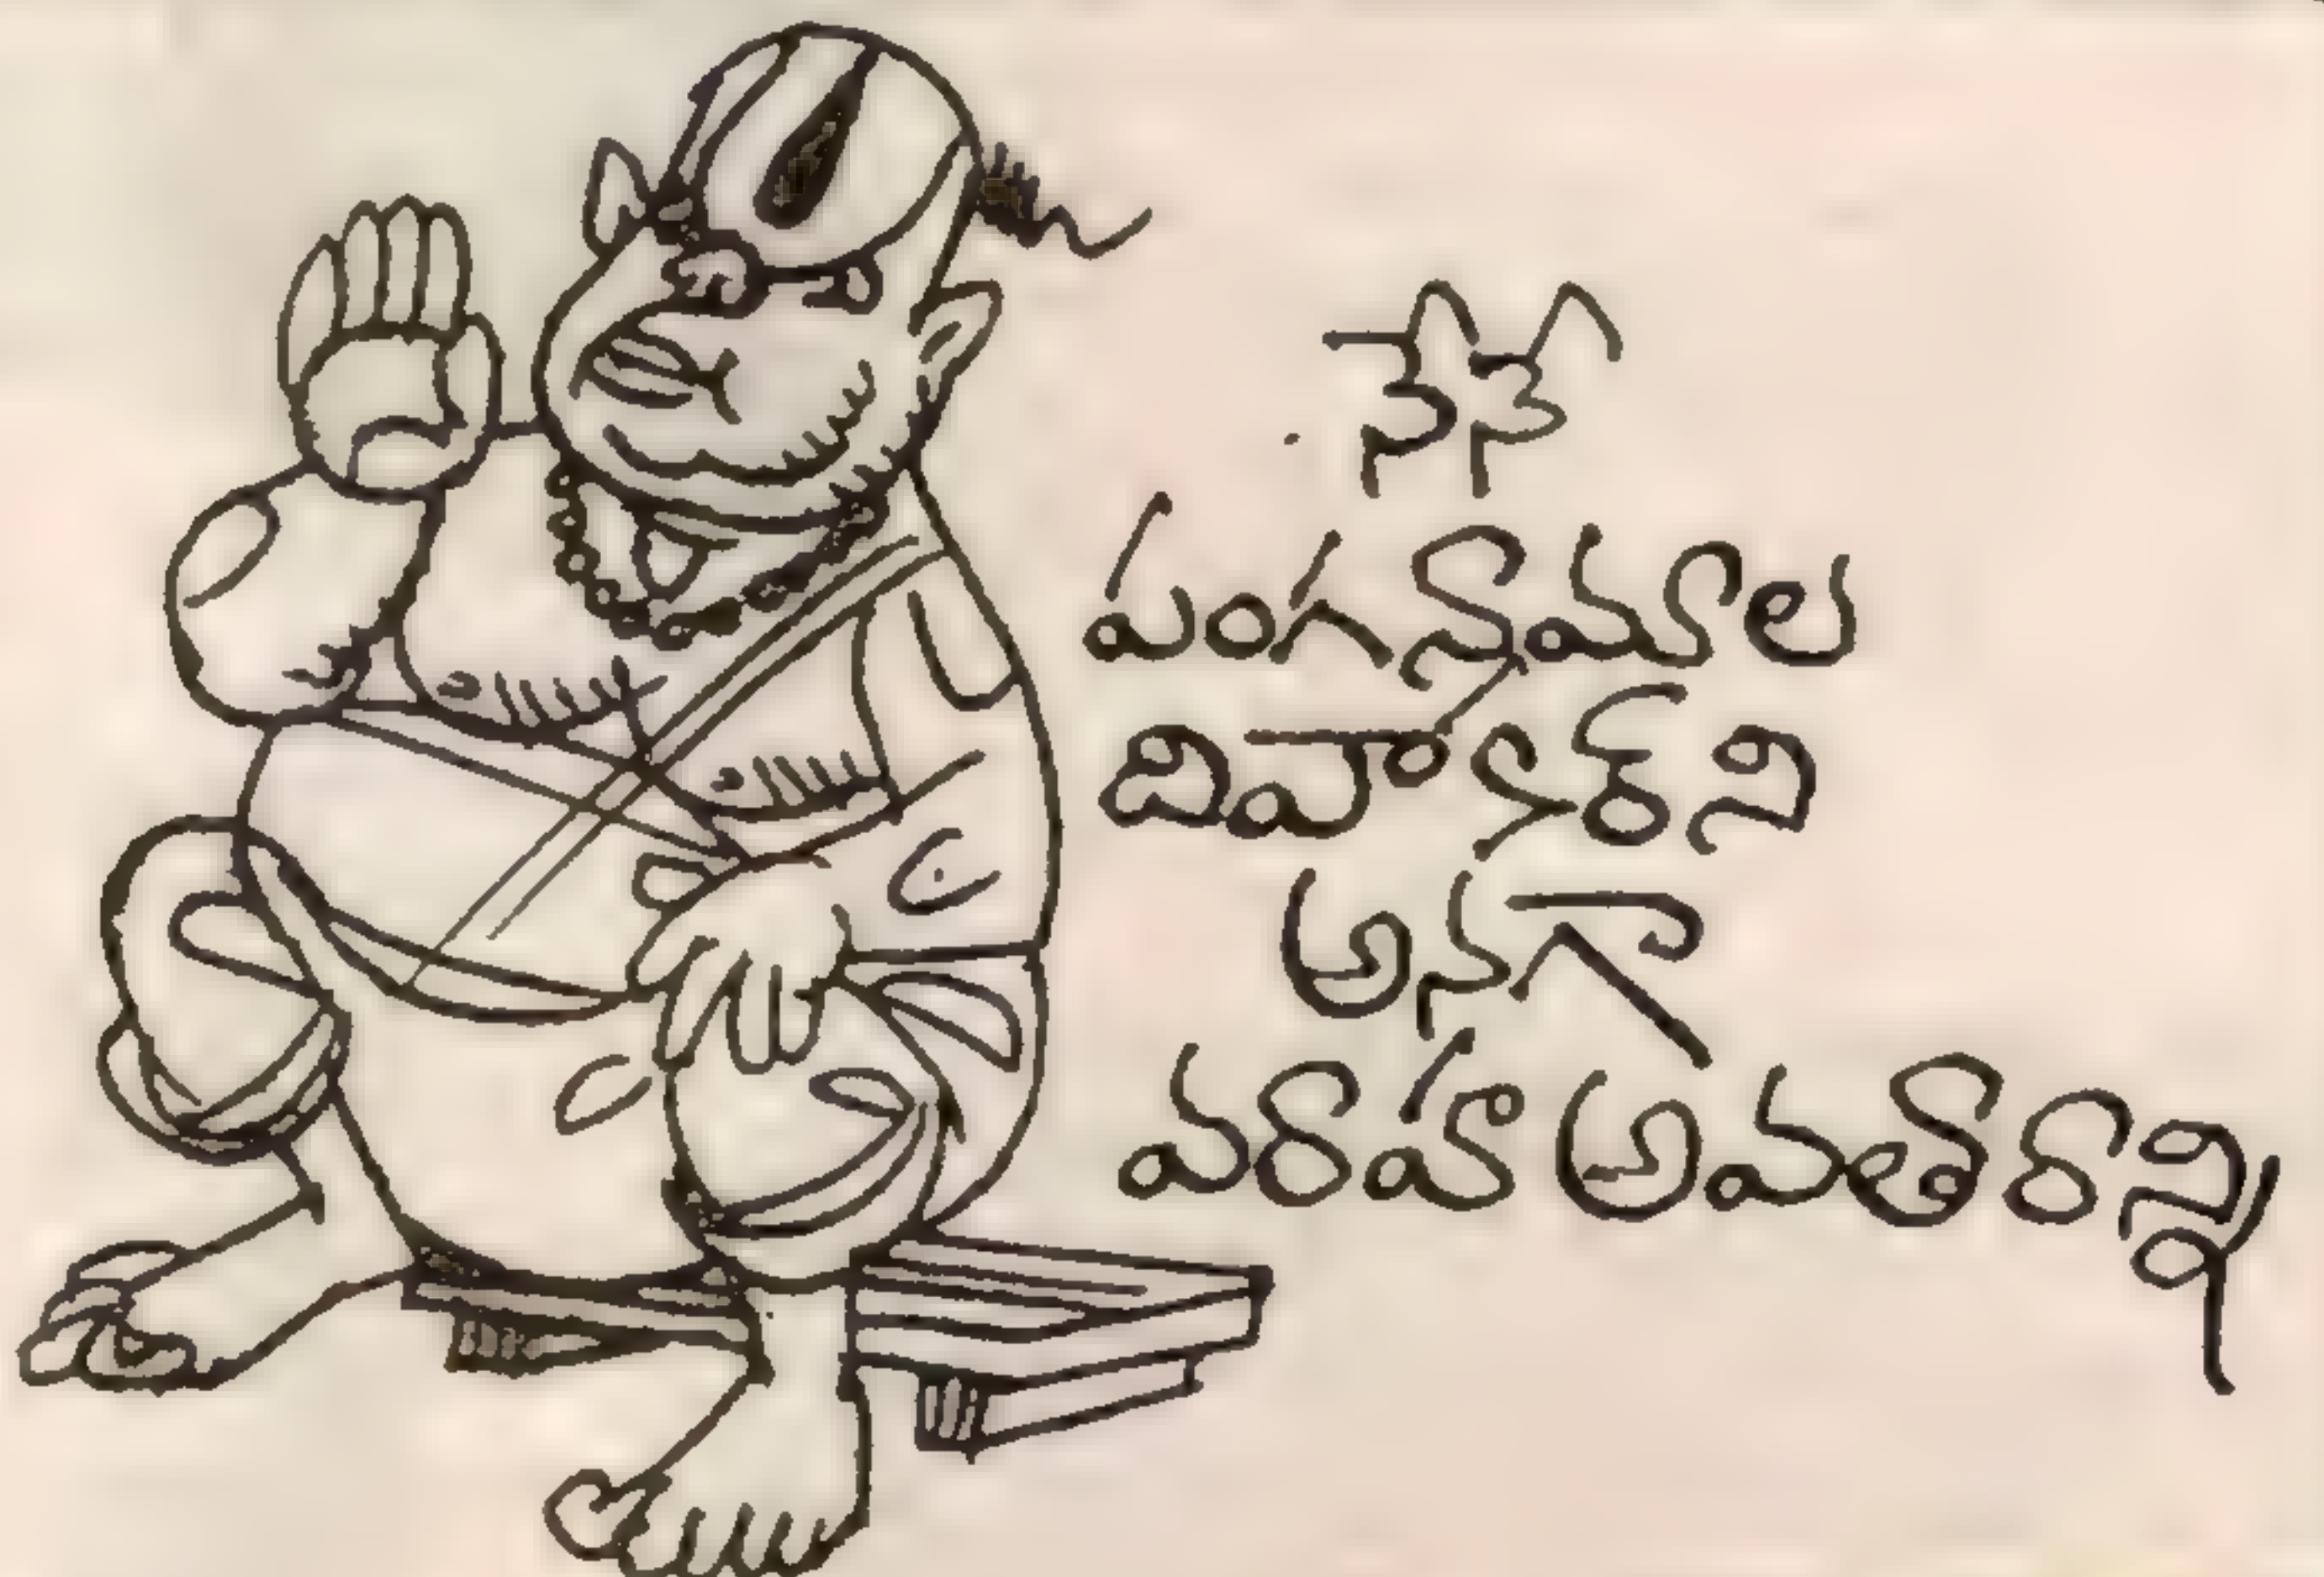 నేను
పంగనామాల
దివాన్ర్ ని
అనగా
వరహా అవతార్ని